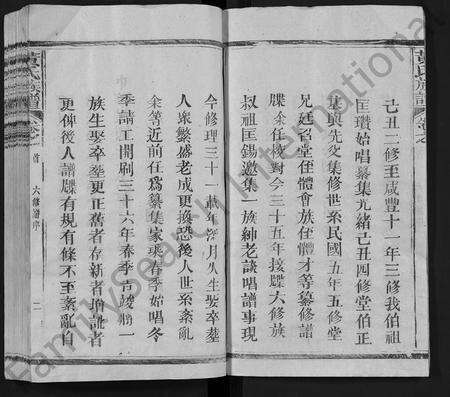 己丑二修至咸豐十一年三修我伯祖
匡瓚始唱纂集光緒己丑四修堂伯正
基與先父集修世系民國五年五修堂
兄廷召堂侄體會族侄體才等纂修譜
牒余任校對今三十五年接牒大修族
叔祖匡錫邀集一族紳老談唱譜事現
今修理三十一載年深月久生娶卒塟
人眾繁盛老成更換恐後人世系紊亂
余等近前任為纂集家乘春季始唱冬
季請工開刷三十六年春季告竣將一
族生娶卒塟更正舊者存新者增訛者
更俾後人譜牒有規有條不至紊亂自
黃氏族譜
卷之
首
六修譜序
二
黃氏族譜
卷之
FamilySearch International